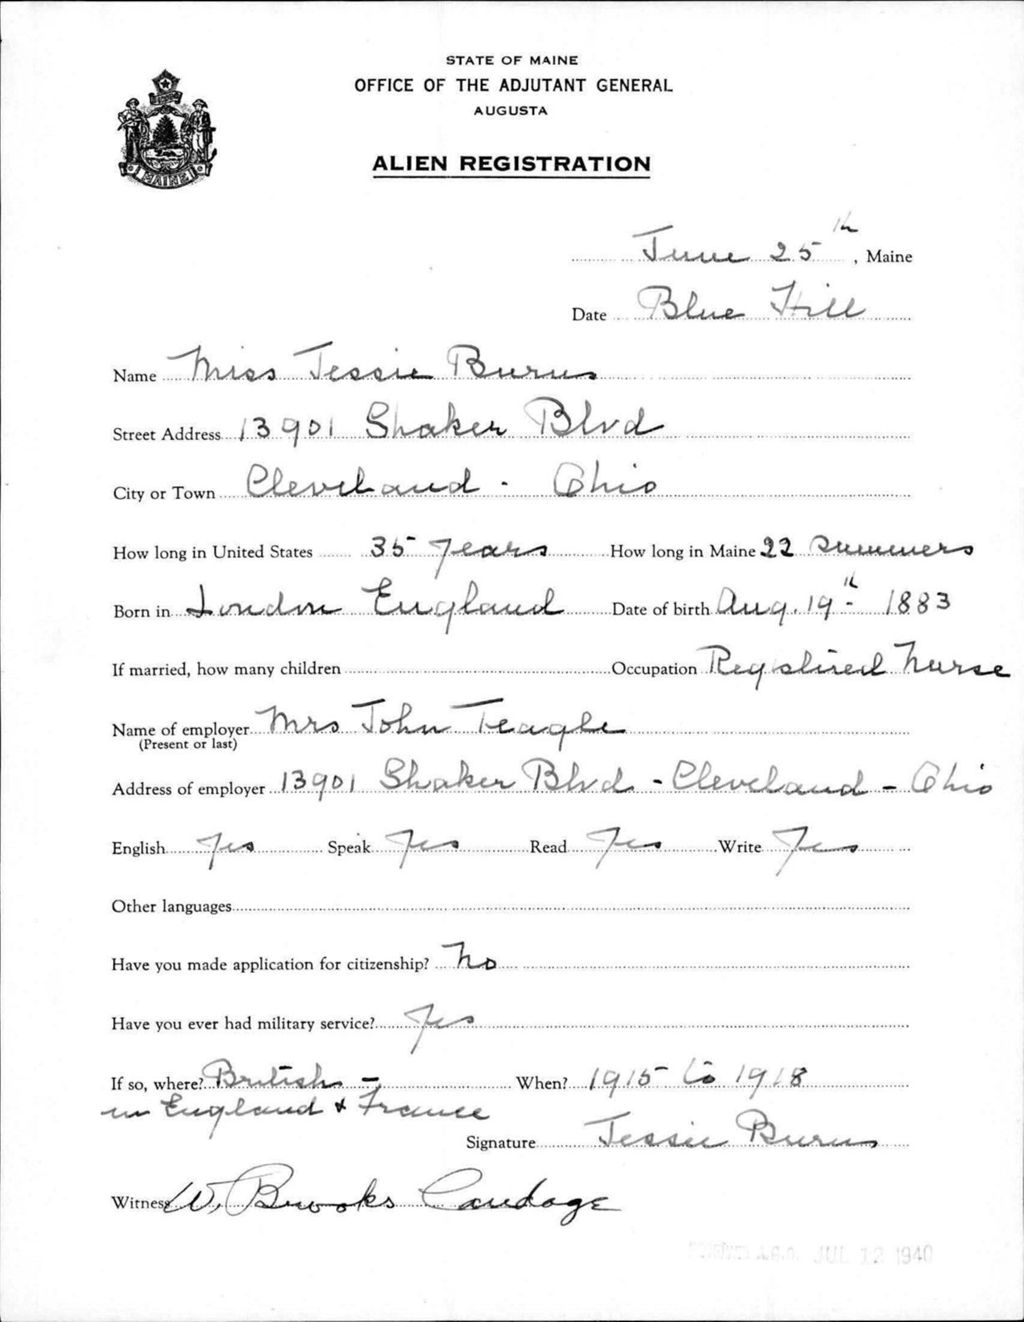 STATE OF MAINE
OFFICE OF THE ADJUTANT GENERAL
AUGUSTA
ALIEN REGISTRATION
MAINE
June 25th, Maine
Date Blue Hill
Name Miss Jessie Burns
Street Address 13901 Shaker Blvd
City or Town Cleveland - Ohio
How long in United States 35 years How long in Maine 22 summers
Born in London England Date of birth Aug. 19th - 1883
If married, how many children Occupation Registered Nurse
Name of employer Mrs John Teagle
(Present or last)
Address of employer 13901 Shaker Blvd - Cleveland - Ohio
English Yes Speak Yes Read Yes Write Yes
Other languages
Have you made application for citizenship? No
Have you ever had military service? Yes
If so, where? British - When? 1915 to 1918
in England & France
Signature Jessie Burns
Witness W. Brooks Candage
RECEIVED A.G.O. JUL 12 1940